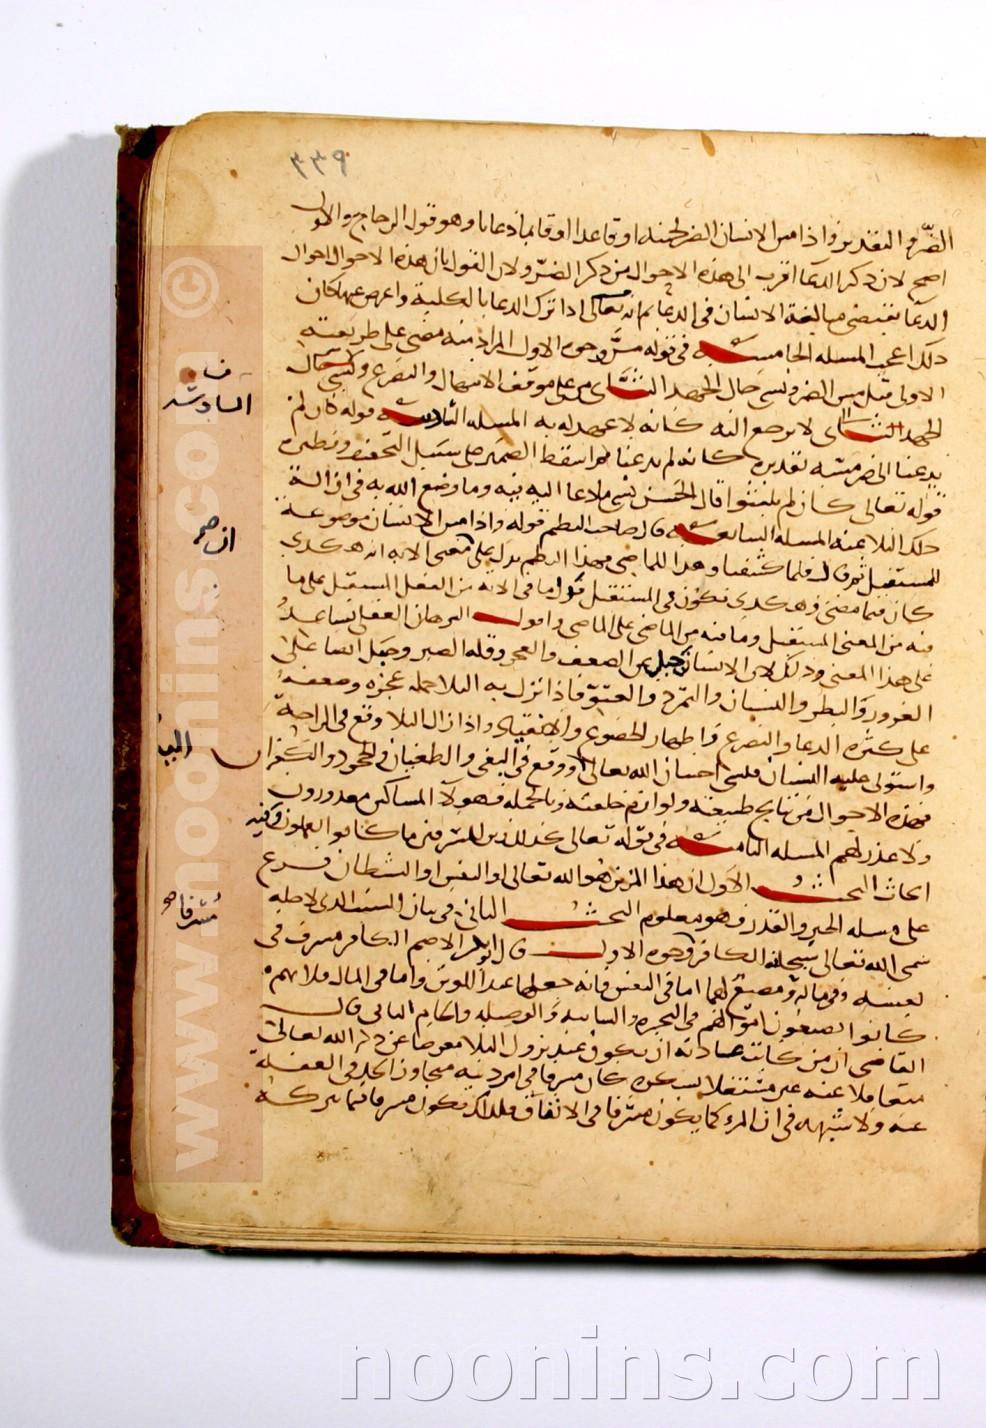 ٣٣٩
الضر والتقدير واذا مس الانسان الضر لجنبه او قاعدا او قائما دعانا وهو قول الزجاج والاول
اصح لان ذكر الدعا اقرب الى هذه الاحوال من ذكر الضر ولان القول بان هذه الاحوال احوال
الدعا تقتضى مبالغة الانسان فى الدعا ثم انه تعالى اذا ترك الدعا بالكلية واعرض عنه كان
ذلك اعجب المسله الخامسه فى قوله مر وجوه الاول المراد منه مضى على طريقته
الاولى قبل مس الضر ونسى حال الجهد الثانى مر على موقف الابتهال والتضرع
لا يرجع اليه كانه لا عهد له به المسله السادسه قوله كان لم
يدعنا الى ضر مسه تقديره كانه لم يدعنا فاسقط الضمير على سبيل التخفيف ونظيره
قوله تعالى كان لم يلبثوا قال الحسن نسى ما دعا الله فيه وما صنع الله به فى ازالة
ذلك البلا عنه المسله السابعه قال صاحب النظم قوله واذا مس الانسان موضوعة
للمستقبل ثم قال فلما كشفنا وهذا للماضى فهذا النظم يدل على معنى الايه انه هكذى
كان فيما مضى وهكذى يكون فى المستقبل فدل ما فى الايه من الفعل المستقبل على ما
فيه من المعنى المستقبل وما فيه من الماضى على الماضى واقول البرهان العقلى يساعد
على هذا المعنى وذلك لان الانسان جبل على الضعف والعجز وقله الصبر وجبل ايضا على
الغرور والبطر والنسيان والتمرد والعتو فاذا نزل به البلا حمله عجزه وضعفه
على كثره الدعا والتضرع واظهار الخضوع والانقياد واذا زال البلا وقع فى الراحة
واستولى عليه النسيان فنسى احسان الله تعالى ووقع فى البغى والطغيان والجحود والكفران
فهذه الاحوال من نتايج طبيعته ولوازم خلقته وبالجمله فهولا المساكين معذورون
ولا عذر لهم المسله الثامنه فى قوله تعالى كذلك زين للمسرفين ما كانوا يعملون وفيه
ابحاث البحث الاول ان هذا المزين هو الله تعالى او النفس او الشيطان فرع
على مسله الجبر والقدر وهو معلوم البحث الثانى فى بيان السبب الذى لاجله
سمى الله تعالى سبحانه الكافر وجوه الاول قال ابو بكر الاصم الكافر مسرف فى
نفسه وفى ماله ومضيع لهما اما فى النفس فانه جعلها عبدا للوثن واما فى المال فلانهم
كانوا يضيعون اموالهم فى البحيره والسائبه والوصيله والحام الثانى قال
القاضى ان من كانت عادته ان يكون عند نزول البلا
متغافلا عنه غير مشتغلا بشكره كان مسرفا فى امر دينه متجاوزا للحد فى الغفلة
عنه ولا شبهه فى ان المرء كما يكون مسرفا فى الانفاق فكذلك يكون مسرفا فيما يتركه
السادسه
صح
www.noonins.com ©
noonins.com